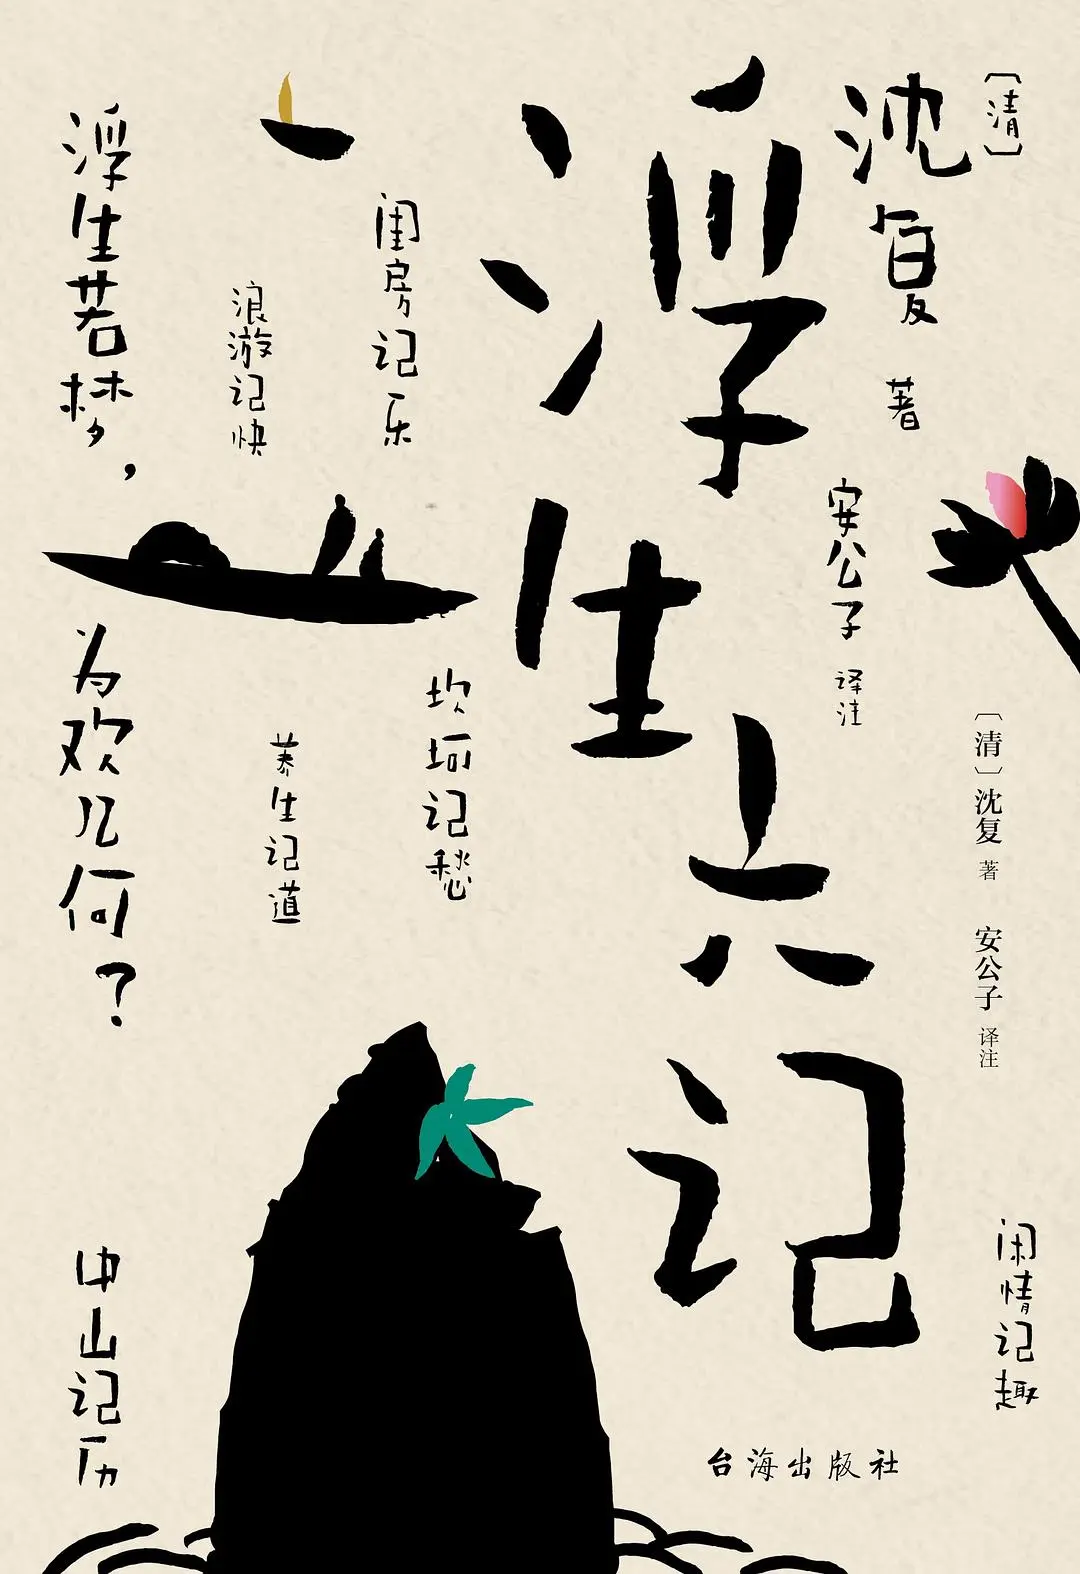 〔清〕
沈复
著
浮生六记
安公子
译注
〔清〕沈复 著 安公子 译注
闺房记乐
浪游记快
浮生若梦，
为欢几何？
坎坷记愁
养生记道
闲情记趣
中山记历
台海出版社